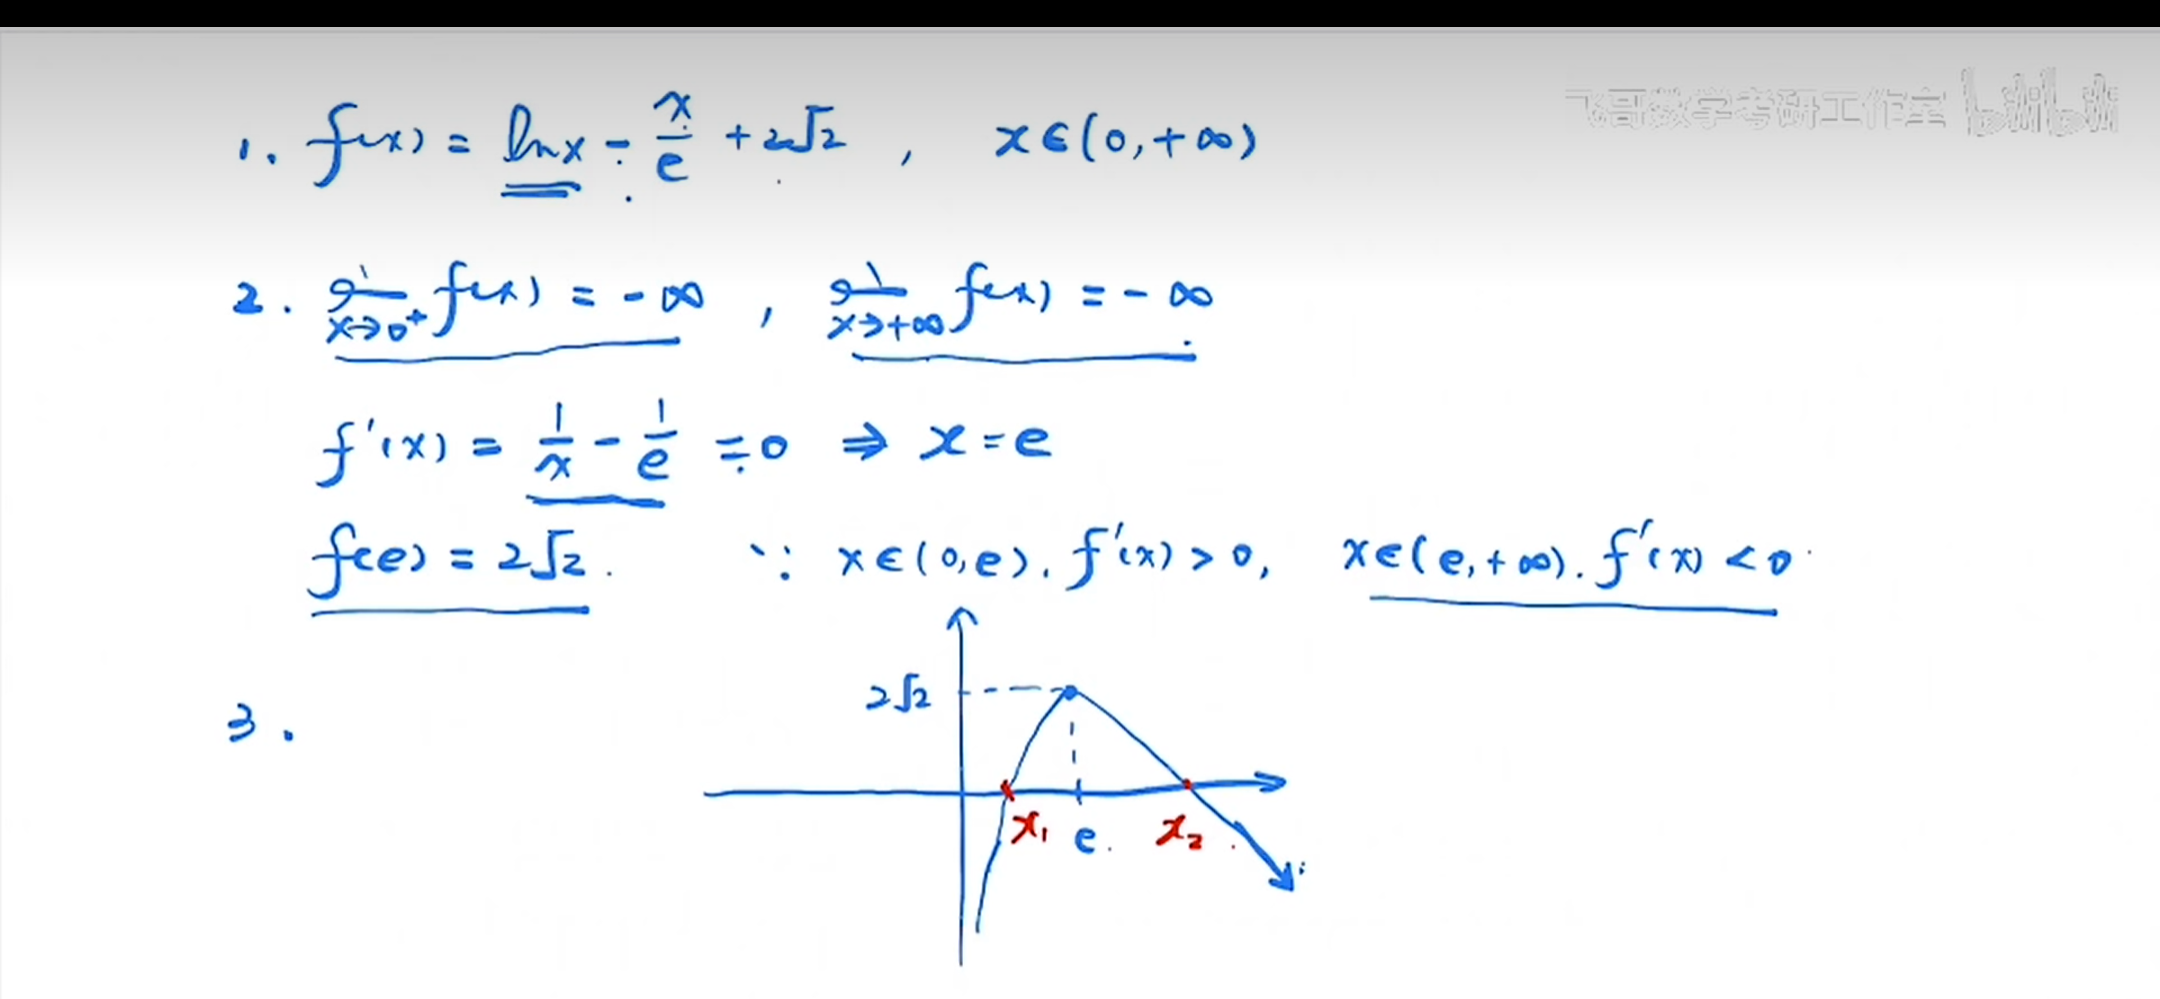 飞哥数学考研工作室 bilibili
1. f(x) = ln x - x/e + 2√2 , x∈(0,+∞)
2. lim x→0⁺ f(x) = -∞ , lim x→+∞ f(x) = -∞
f'(x) = 1/x - 1/e = 0 ⇒ x = e
f(e) = 2√2. ∵ x∈(0,e). f'(x) > 0, x∈(e,+∞). f'(x) < 0
2√2
3.
x₁ e. x₂